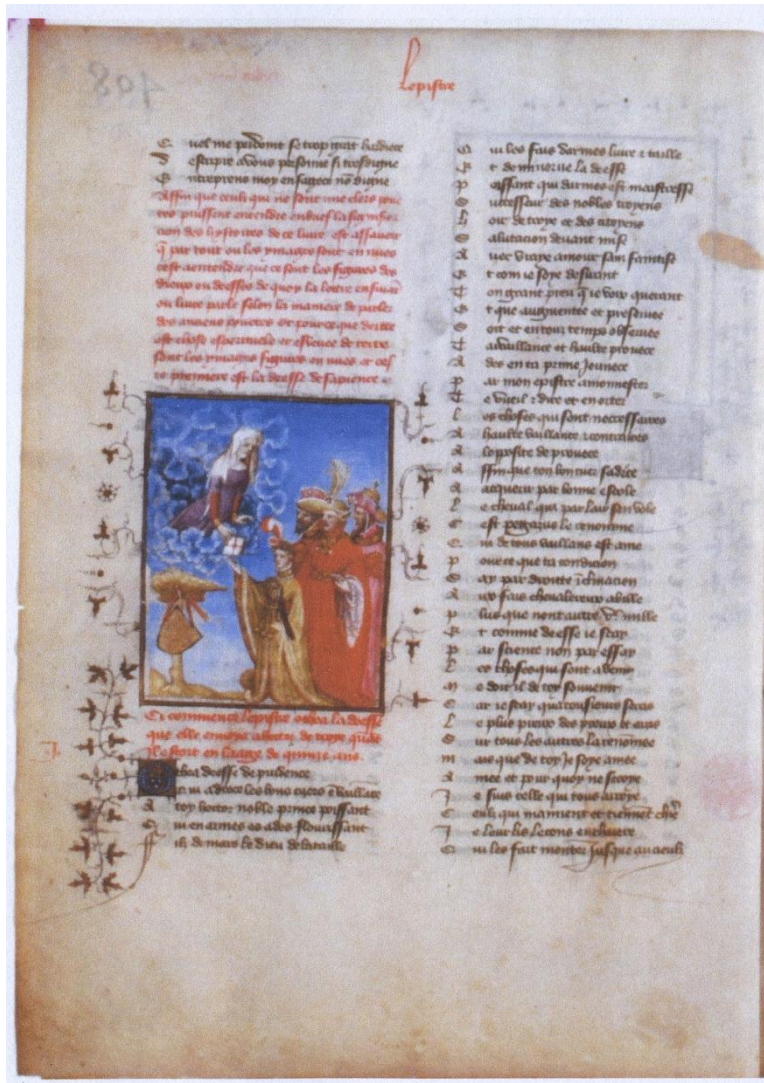 Lepistre
vuel me perdoint se trop grant hardiece
d escripre a vous personne si tresdigne
E ntreprens moy en sagece non digne
Affin que ceulx qui ne sont mie clers poe
tes puissent entendre en brief la significa
cion des hystoires de ce livre est assavoir
q par tout ou les ymages sont en nues
cest a entendre que ce sont les figures des
dieux ou deesses de quoy la lettre ensuivant
ou livre parle selon la maniere de parler
des anciens poetes et pource que deitte
est chose esperituele et eslevee de terre
sont les ymages figures en nues et ces
te premiere est la deesse de sapience
Cy commence lepistre othea la deesse
que elle envoya a hector de troye quant
il estoit en laage de quinze ans
Othea deesse de prudence
Qui adrece les bons cuers en vaillance
A toy hector noble prince poissant
Qui en armes es ades flourissant
filz de mars le dieu de bataille
Q ui les fais darmes livre et taille
E t de minerve la deesse
p oissant qui darmes est maistresse
S uccesseur des nobles troyens
h oir de troye et des citoyens
S alutacion devant mise
A vec vraye amour sans faintise
E t com je soye desirant
T on grant preu que je voix querant
E t que augmentee et preservee
S oit et en tous temps observee
T a vaillance et haulte prouece
A des en ta prime jeunece
p ar mon epistre amonnester
T e vueil et dire et enorter
l es choses qui sont neccessaires
A haulte vaillance et contraires
A lopposite de prouece
A ffin que ton bon cuer sadrece
A acquerir par bonne escole
l e cheval qui par lair senvole
C est pegasus le renomme
Q ui de tous vaillans est ame
p our ce que ta condicion
S ay par droitte inclinacion
A ux fais chevalereux abille
p lus que nont autres .Vc. mille
E t comme deesse je scay
p ar science non par essay
l es choses qui sont a venir
m e doit il de toy souvenir
C ar je scay qua tousjours seras
l e plus preux des preux et auras
S ur tous les autres la renommee
m ais que de toy je soye amee
A mee et pour quoy ne seroye
J e suis celle qui tous arroye
C eulx qui maiment et tiennent chere
J e leur lis lecons en chaiere
Q ui les fait monter jusque aux cieulx